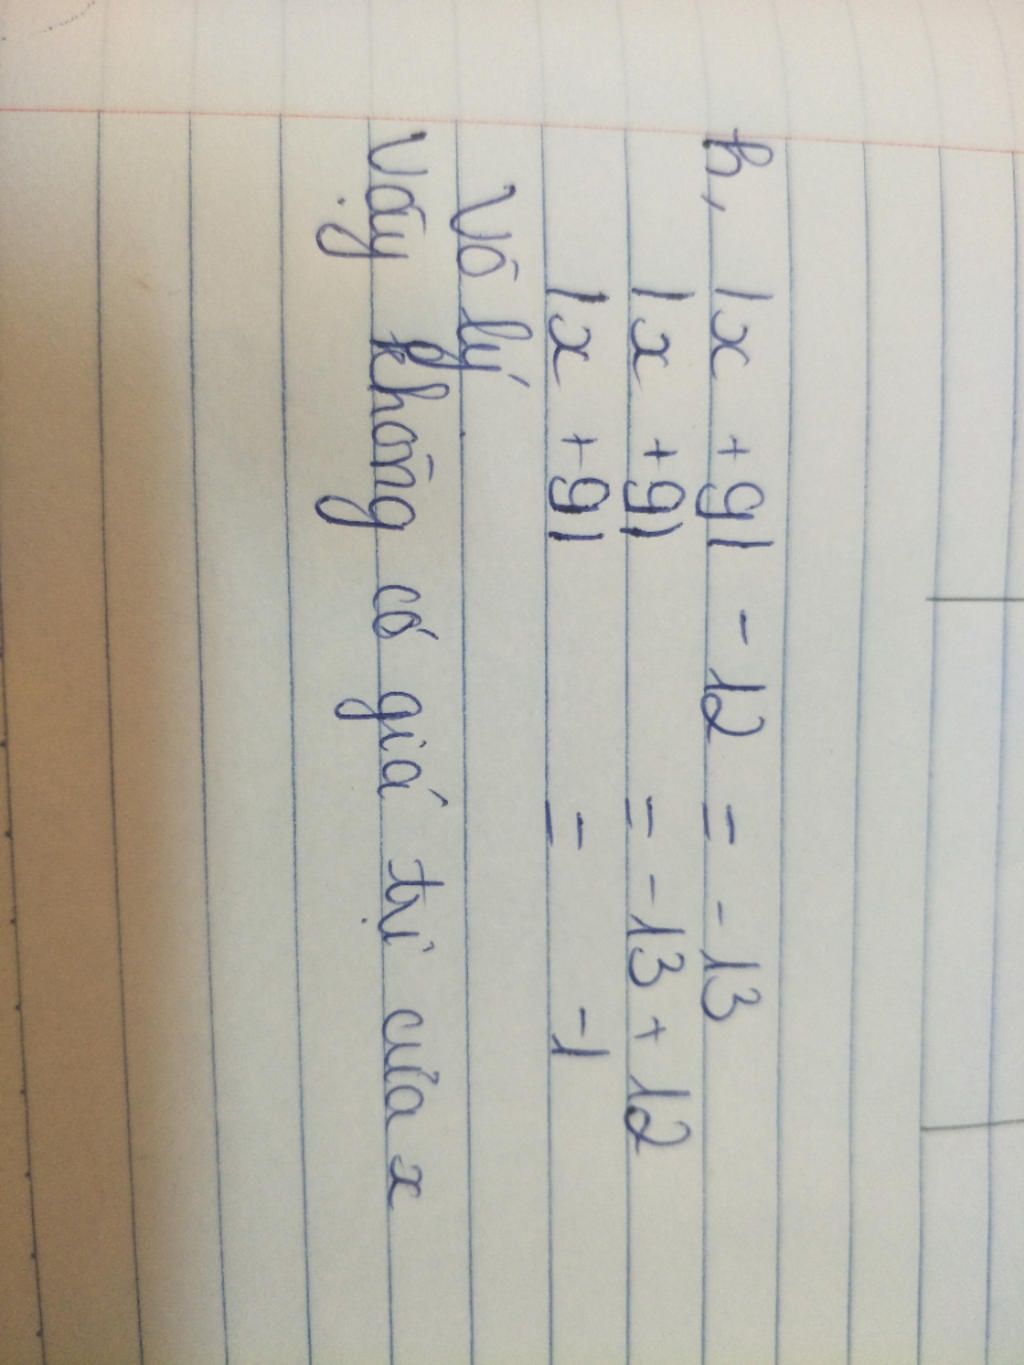 h, |x + 9| - 12 = -13
|x + 9| = -13 + 12
|x + 9| = -1
Vô lý
Vậy không có giá trị của x